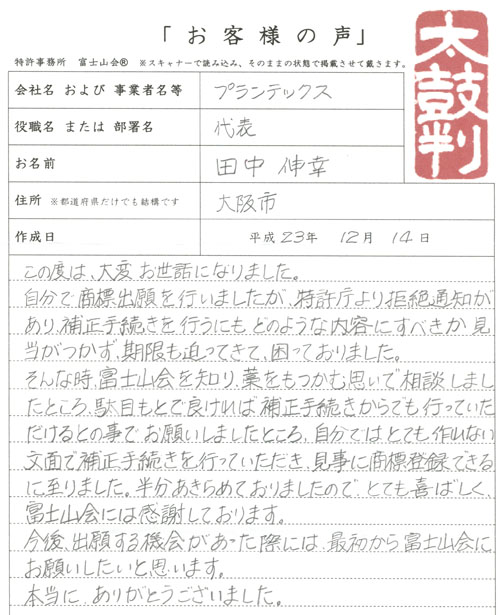 「お客様の声」
特許事務所 富士山会® ※スキャナーで読み込み、そのままの状態で掲載させて戴きます。
太鼓判
会社名 および 事業者名等 プランテックス
役職名 または 部署名 代表
お名前 田中 伸幸
住所 ※都道府県だけでも結構です 大阪市
作成日 平成 23年 12月 14日
この度は、大変お世話になりました。
自分で商標出願を行いましたが、特許庁より拒絶通知が
あり、補正手続きを行うにも、どのような内容にすべきか、見
当がつかず、期限も迫ってきて、困っておりました。
そんな時、富士山会を知り、藁をもつかむ思いで相談しまし
たところ、駄目もとで良ければ、補正手続きからでも行っていた
だけるとの事で、お願いしましたところ、自分ではとても作れない
文面で補正手続きを行っていただき、見事に商標登録できる
に至りました。半分あきらめておりましたので、とても喜ばしく、
富士山会には感謝しております。
今後、出願する機会があった際には、最初から富士山会に
お願いしたいと思います。
本当に、ありがとうございました。